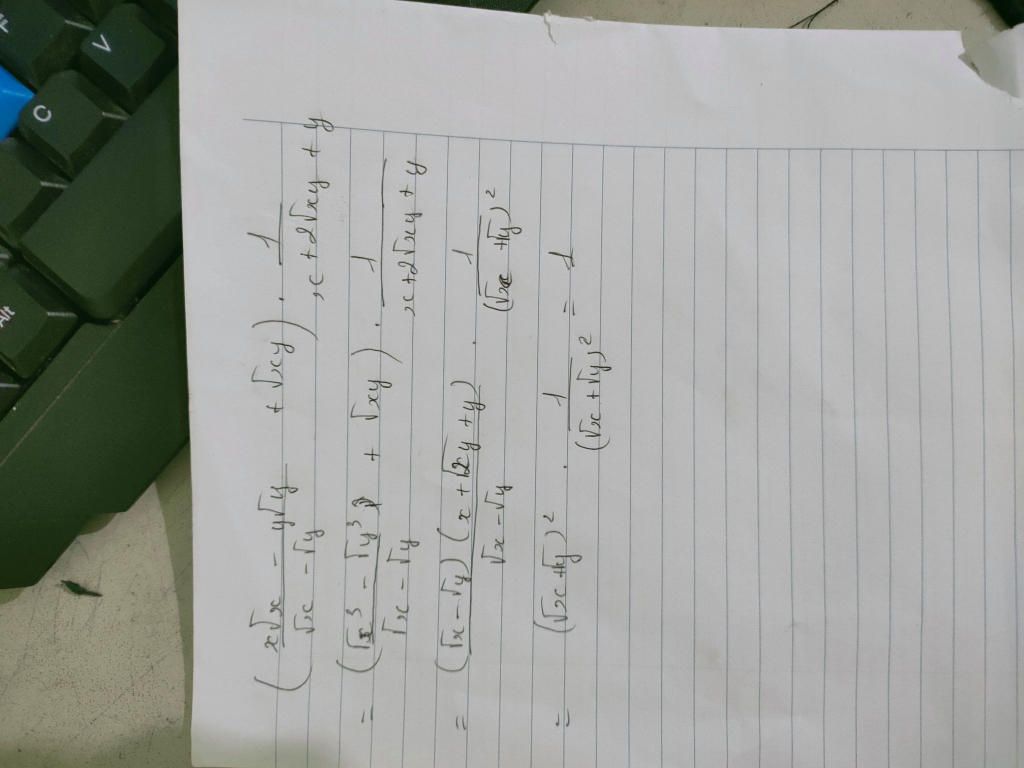 (x√x - y√y / √x - √y + √xy) . 1 / x + 2√xy + y
= (√x³ - √y³ / √x - √y + √xy) . 1 / x + 2√xy + y
= (√x - √y) (x + √2y + y) / √x - √y . 1 / (√x + √y)²
= (√x + √y)² . 1 / (√x + √y)² = 1
V
C
Alt